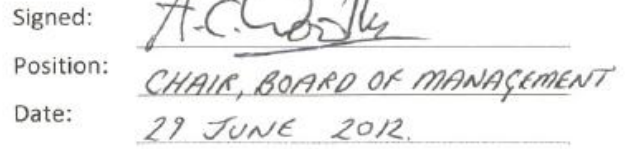 Signed: A.C.
Position: CHAIR, BOARD OF MANAGEMENT
Date: 29 JUNE 2012.